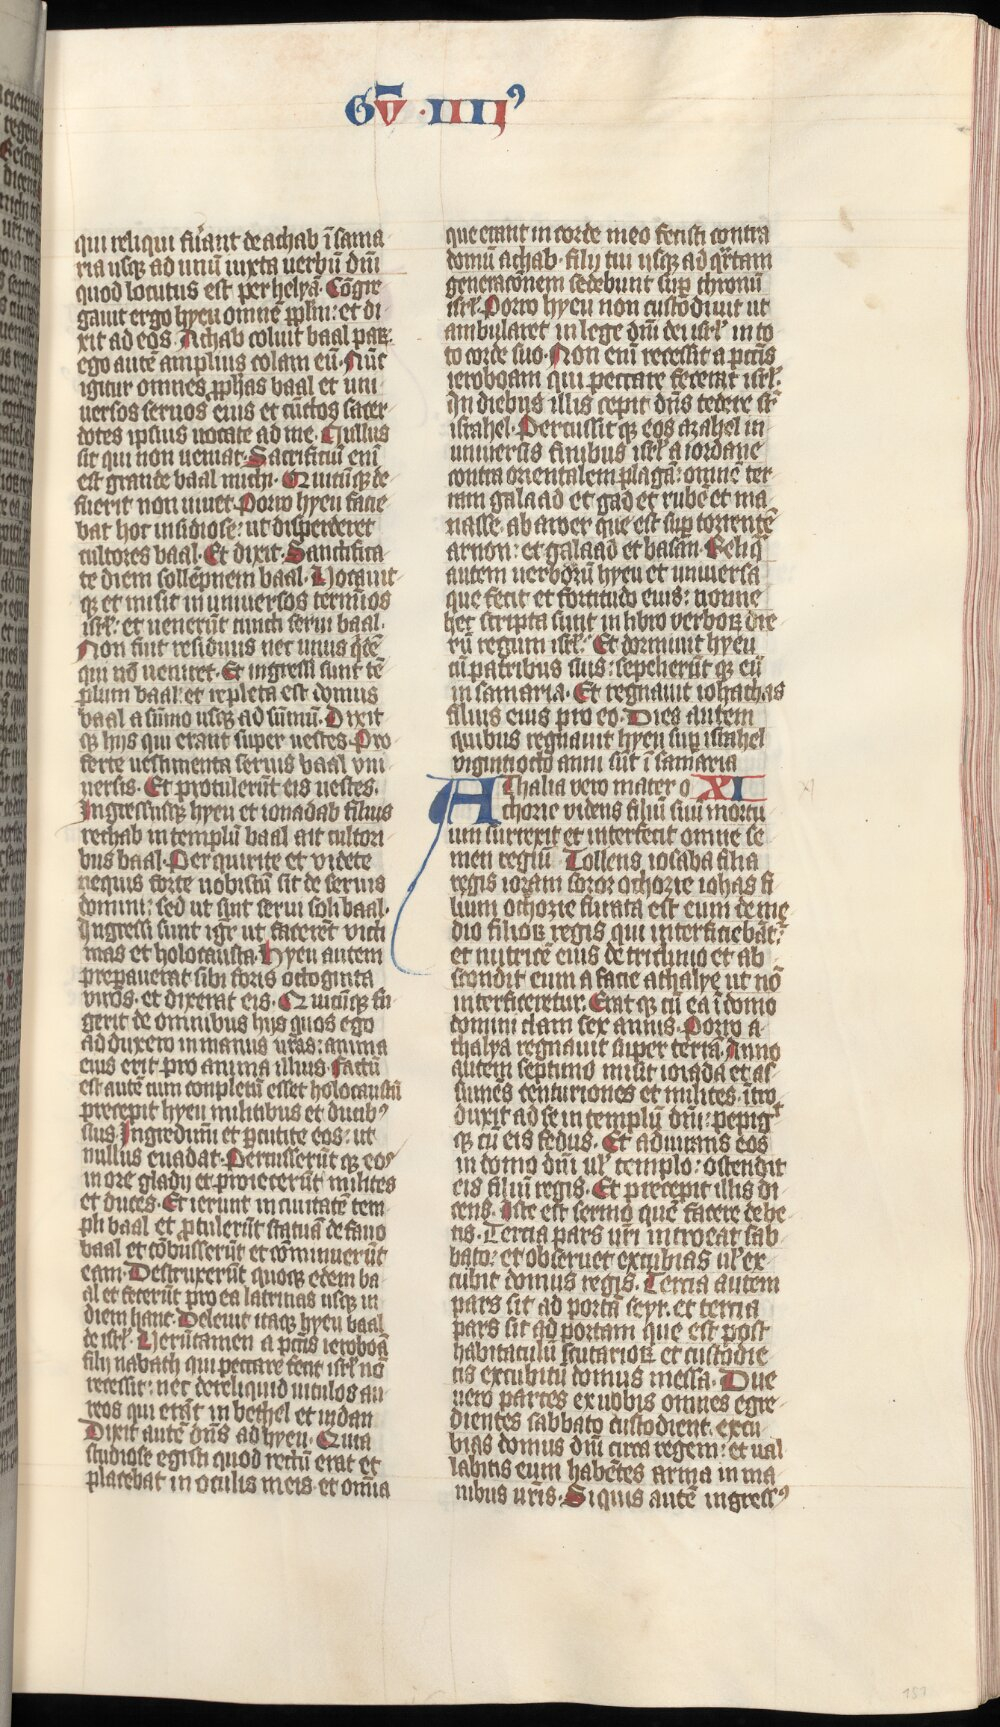 Gū · IIIIꝰ
qui reliqui fuāt de achab ī sama
ria usqꝫ ad unū iuxta uerbū dnī
quod locutus est per helyā. Cōgre
gauit ergo hyeu omnē ppl̄m: et di
xit ad eos. Achab coluit baal paꝝ.
ego autē amplius colam eū. Nūc
igitur omnes ꝓphas baal et uni
uersos seruos eius et cūctos sacer
dotes ipsius uocate ad me. Nullus
sit qui non ueniat. Sacrificiū enī
est grande baal michi. Quicūqꝫ de
fuerit non uiuet. Porro hyeu facie
bat hoc insidiose: ut disperderet
cultores baal. Et dixit. Sanctifica
te diem sollēpnem baal. Uocauit
qꝫ et misit in uniuersos termīos
isrl̄: et uenerūt cuncti serui baal.
Non fuit residuus nec unus qdē
qui nō ueniret. Et ingressi sunt tē
plum baal: et repleta est domus
baal a sūmo usqꝫ ad sūmū. Dixit
qꝫ hijs qui erant super uestes. Pro
ferte uestimenta seruis baal vni
uersis. Et protulerūt eis uestes.
Ingressusqꝫ hyeu et ionadab filius
rechab in templū baal ait cultori
bus baal. Perquirite et videte
nequis forte uobiscū sit de seruis
domini: sed ut sint serui soli baal.
Ingressi sunt igr ut facerēt victi
mas et holocausta. Hyeu autem
preparauerat sibi foris octoginta
viros. et dixerat eis. Quicūqꝫ fu
gerit de omnibus hijs quos ego
adduxero in manus vr̄as: anima
eius erit pro anima illius. Factū
est autē cum conpletū esset holocaustū
precepit hyeu militibus et ducibꝰ
suis. Ingredimī et ꝑcutite eos: ut
nullus euadat. Percusserūt qꝫ eos
in ore gladij et proiecerūt milites
et duces. Et ierunt in ciuitatē tem
pli baal et ꝓtulerūt statuā de fano
baal et cōbusserūt et cōminuerūt
eam. Destruxerūt quoqꝫ edem ba
al et fecerūt pro ea latrinas usqꝫ in
diem hanc. Deleuit itaqꝫ hyeu baal
de isrl̄. Uerūtamen a pctīs ieroboā
filij nabath qui peccare fecit isrl̄ nō
recessit: nec dereliquid uitulos au
reos qui erāt in bethel et in dan
Dixit autē dn̄s ad hyeu. Quia
studiose egisti quod rectū erat et
placebat in oculis meis et omīa
que erant in corde meo fecisti contra
domū achab. filij tui usqꝫ ad qrtam
generacōnem sedebunt sup thronū
isrl̄. Porro hyeu non custodiuit ut
ambularet in lege dnī dei isrl̄ in to
to corde suo. Non enī recessit a pctīs
ieroboam qui peccare fecerat isrl̄.
In diebus illis cepit dn̄s tedere sr̄
israhel. Percussit qꝫ eos azahel in
uniuersis finibus isrl̄ a iordane
contra orientalem plagā: omnē ter
ram galaad et gad et rubē et ma
nasse. ab aroer que est sup torrentē
arnon: et galaad et basan. Reliq̄
autem uerborū hyeu et uniuersa
que fecit et fortitudo eius: nonne
hec scripta sunt in libro verboꝝ die
rū regum isrl̄. Et dormiuit hyeu
cū patribus suis: sepelierūt qꝫ eū
in samaria. Et regnauit iohachas
filius eius pro eo. Dies autem
quibus regnauit hyeu sup israhel
viginti octo anni sūt ī samaria
Athalia vero mater o XI
chozie videns filiū suū mortu
um surrexit et interfecit omne se
men regiū. Tollens iosaba filia
regis ioram soror ochozie iohas fi
lium ochozie furata est eum de me
dio filioꝝ regis qui interficiebāt̄:
et nutricē eius de triclinio et ab
scondit eum a facie athalye ut nō
interficeretur. Erat qꝫ cū ea ī domo
domini clam sex annis. Porro a
thalya regnauit super terrā. Anno
autem septimo misit ioiada et as
sumēs centuriones et milites. ītro
duxit ad se in templū dnī: pepigͭ
qꝫ cū eis fedus. Et adiurans eos
in domo dnī ul̓ templo: ostendit
eis filiū regis. Et precepit illis di
cens. Iste est sermo quē facere debe
tis. Tercia pars vr̄i introeat sab
bato: et obseruet excubias ul̓ ex
cubit domus regis. Tercia autem
pars sit ad portā seyr. et tercia
pars sit ad portam que est post
habitaculū scutarioꝝ et custodie
tis excubitū domus messa. Due
uero partes ex uobis omnes egre
dientes sabbato custodient. excu
bias domus dnī circa regem: et ual
labitis eum habētes arma in ma
nibus vr̄is. Siquis autē ingressꝰ
187